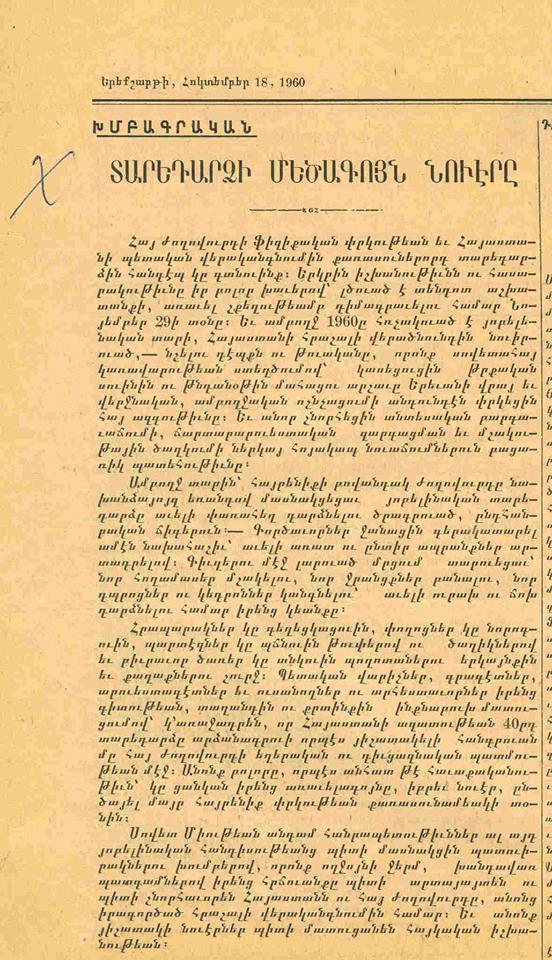 Երեքշաբթի, Հոկտեմբեր 18, 1960
ԽՄԲԱԳՐԱԿԱՆ
ՏԱՐԵԴԱՐՁԻ ՄԵԾԱԳՈՅՆ ՆՈՒԷՐԸ
Հայ ժողովուրդի ֆիզիքական փրկութեան եւ Հայաստա—
նի պետական վերականգնումին քառասուներորդ տարեդար—
ձին հանդէպ կը գտնուինք։ Երկրին իշխանութիւնն ու հասա—
րակութիւնը իր բոլոր խաւերով՝ լծուած է տենդոտ աշխա—
տանքի, առաւել շքեղութեամբ դիմագրաւելու համար Նո—
յեմբեր 29ի տօնը։ Եւ ամբողջ 1960ը հռչակուած է յոբելե—
նական տարի, Հայաստանի հրաշալի վերածնունդին նուի—
րուած,— նշելու դէպքն ու թուականը, որոնք սովետահայ
կառավարութեան ստեղծումով՝ կասեցուցին թրքական
սուինին ու թնդանօթին մահացու արշաւը Երեւանի վրայ եւ
վերջնական, ամբողջական ոչնչացումի անդունդէն փրկեցին
Հայ ազգութիւնը։ Եւ անոր շնորհեցին անտեսական բարգա—
ւաճումի, ճարտարարուեստական զարգացման եւ մշակու—
թային ծաղկումի ներկայ հոյակապ նուաճումներուն բացա—
ռիկ պատեհութիւնը։
Ամբողջ տարին՝ Հայրենիքի բովանդակ ժողովուրդը նա—
խանձայոյզ եռանդով մասնակցեցաւ յոբելինական տարե—
դարձը աւելի փառահեղ դարձնելու ծրագրուած, ընդհան—
րական ճիգերուն։— Գործաւորներ ջանացին գերակատարել
ամէն նախահաշիւ՝ աւելի առատ ու ընտիր ապրանքներ ար—
տադրելով։ Գիւղերու մէջ լարուած մրցում տարուեցաւ՝
նոր հողամասեր մշակելու, նոր ջրանցքներ բանալու, նոր
դպրոցներ ու կեդրոններ կանգնելու՝ աւելի ուրախ ու ճոխ
դարձնելու համար իրենց կեանքը։
Հրապարակներ կը գեղեցկացուին, փողոցներ կը նորոգ—
ուին, պարտէզներ կը պճնուին թուփերով ու ծաղիկներով
եւ բիւրաւոր ծառեր կը տնկուին պողոտաներու երկայնքին
եւ քաղաքներու շուրջ։ Պետական վարիչներ, գրագէտներ,
արուեստագէտներ եւ ուսանողներ ու արհեստաւորներ իրենց
գիտութեան, տաղանդին ու քրտինքին ինքնաբուխ մատու—
ցումով՝ կ՚առաջադրեն, որ Հայաստանի ազատութեան 40րդ
տարեդարձը արձանագրուի որպէս յիշատակելի հանգրուան
մը Հայ ժողովուրդի եղերական ու դիւցազնական պատմու—
թեան մէջ։ Անոնք բոլորը, որպէս անհատ թէ հաւաքականու—
թիւն՝ կը ցանկան իրենց առաւելագոյնը, իբրեւ նուէր, ըն—
ծայել մայր Հայրենիք փրկութեան քառասունամեակի տօ—
նին։
Սովետ Միութեան անդամ Հանրապետութիւններ ալ այդ
յոբելինական հանդիսութեանց պիտի մասնակցին պատուի—
րակներու խումբերով, որոնք ողջոյնի ջերմ, խանդավառ
պատգամներով իրենց հրճուանքը պիտի արտայայտեն ու
պիտի շնորհաւորեն Հայաստանն ու Հայ ժողովուրդը, անոնց
իրագործած հրաշալի վերականգնումին համար։ Եւ անոնք
յիշատակի նուէրներ պիտի մատուցանեն Հայկական իշխա—
նութեան։